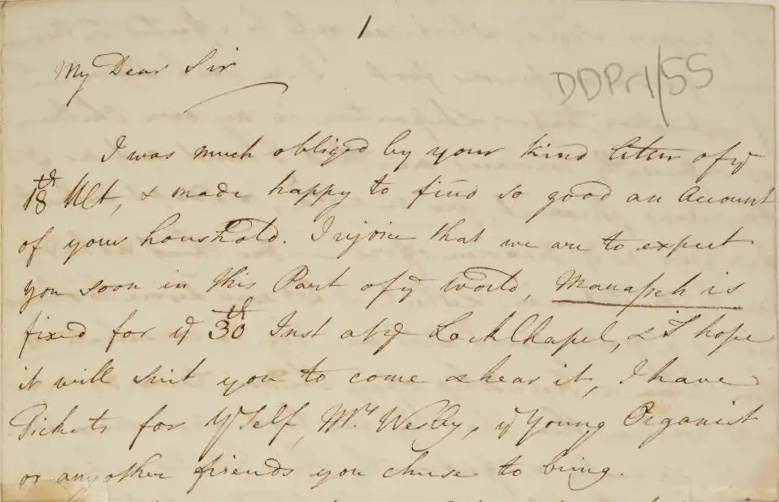 1
My Dear Sir
DDPr1/55
I was much obliged by your kind letter of yͤ
18th Ult, & made happy to find so good an Account
of your houshold. I rejoice that we are to expect
you soon in this Part of yͤ World, Manaſseh is
fixed for yͤ 30th Inst at yͤ Lock Chapel, & I hope
it will suit you to come & hear it, I have
Tickets for yrSelf, Mrs Wesley, yͤ Young Organist
or any other friends you chuse to bring.